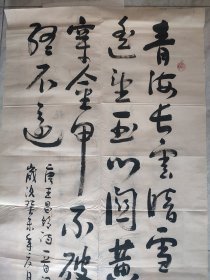 青海长雲暗雪
遥望玉门關黄
穿金甲不破
终不還
唐王昌龄诗一首
歲次癸未年